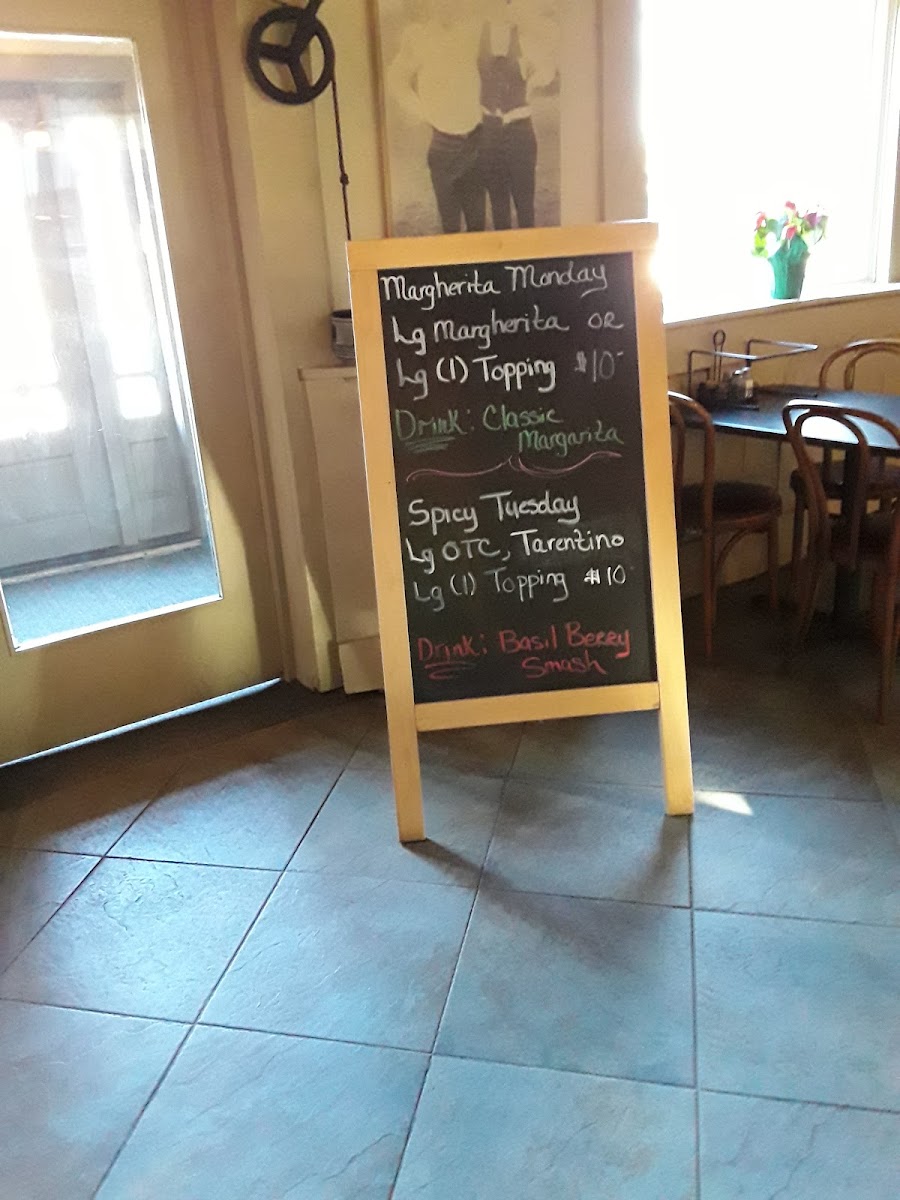 Margherita Monday
Lg Margherita OR
Lg (1) Topping $10
Drink: Classic
Margarita
Spicy Tuesday
Lg OTC, Tarentino
Lg (1) Topping $10
Drink: Basil Berry
Smash